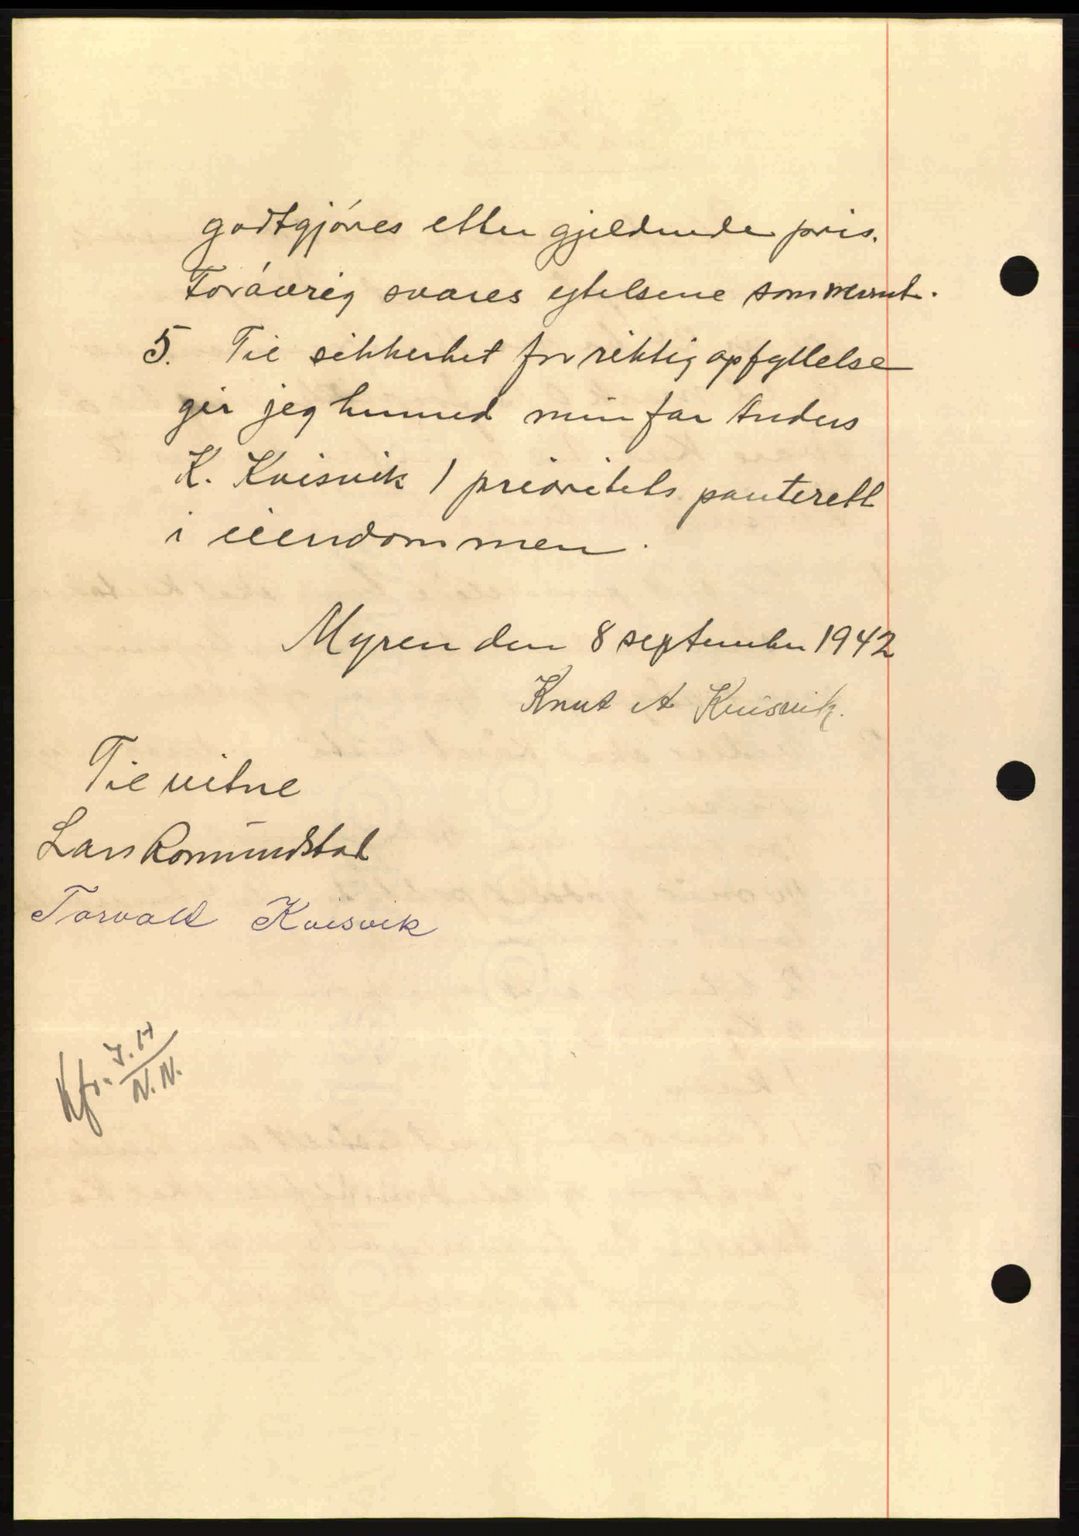 godtgjöres etter gjeldende pris.
Foråvrig svares ytelsene som nevnt.
5. Til sikkerhet for riktig opfyllelse
gir jeg herved min far Anders
K. Kvisvik 1 prioritets panterett
i eiendommen.
Myren den 8 september 1942
Knut A Kvisvik.
Til vitne
Lars Romundstad
Torvald Kvisvik
Kfr. J.H
N.N.